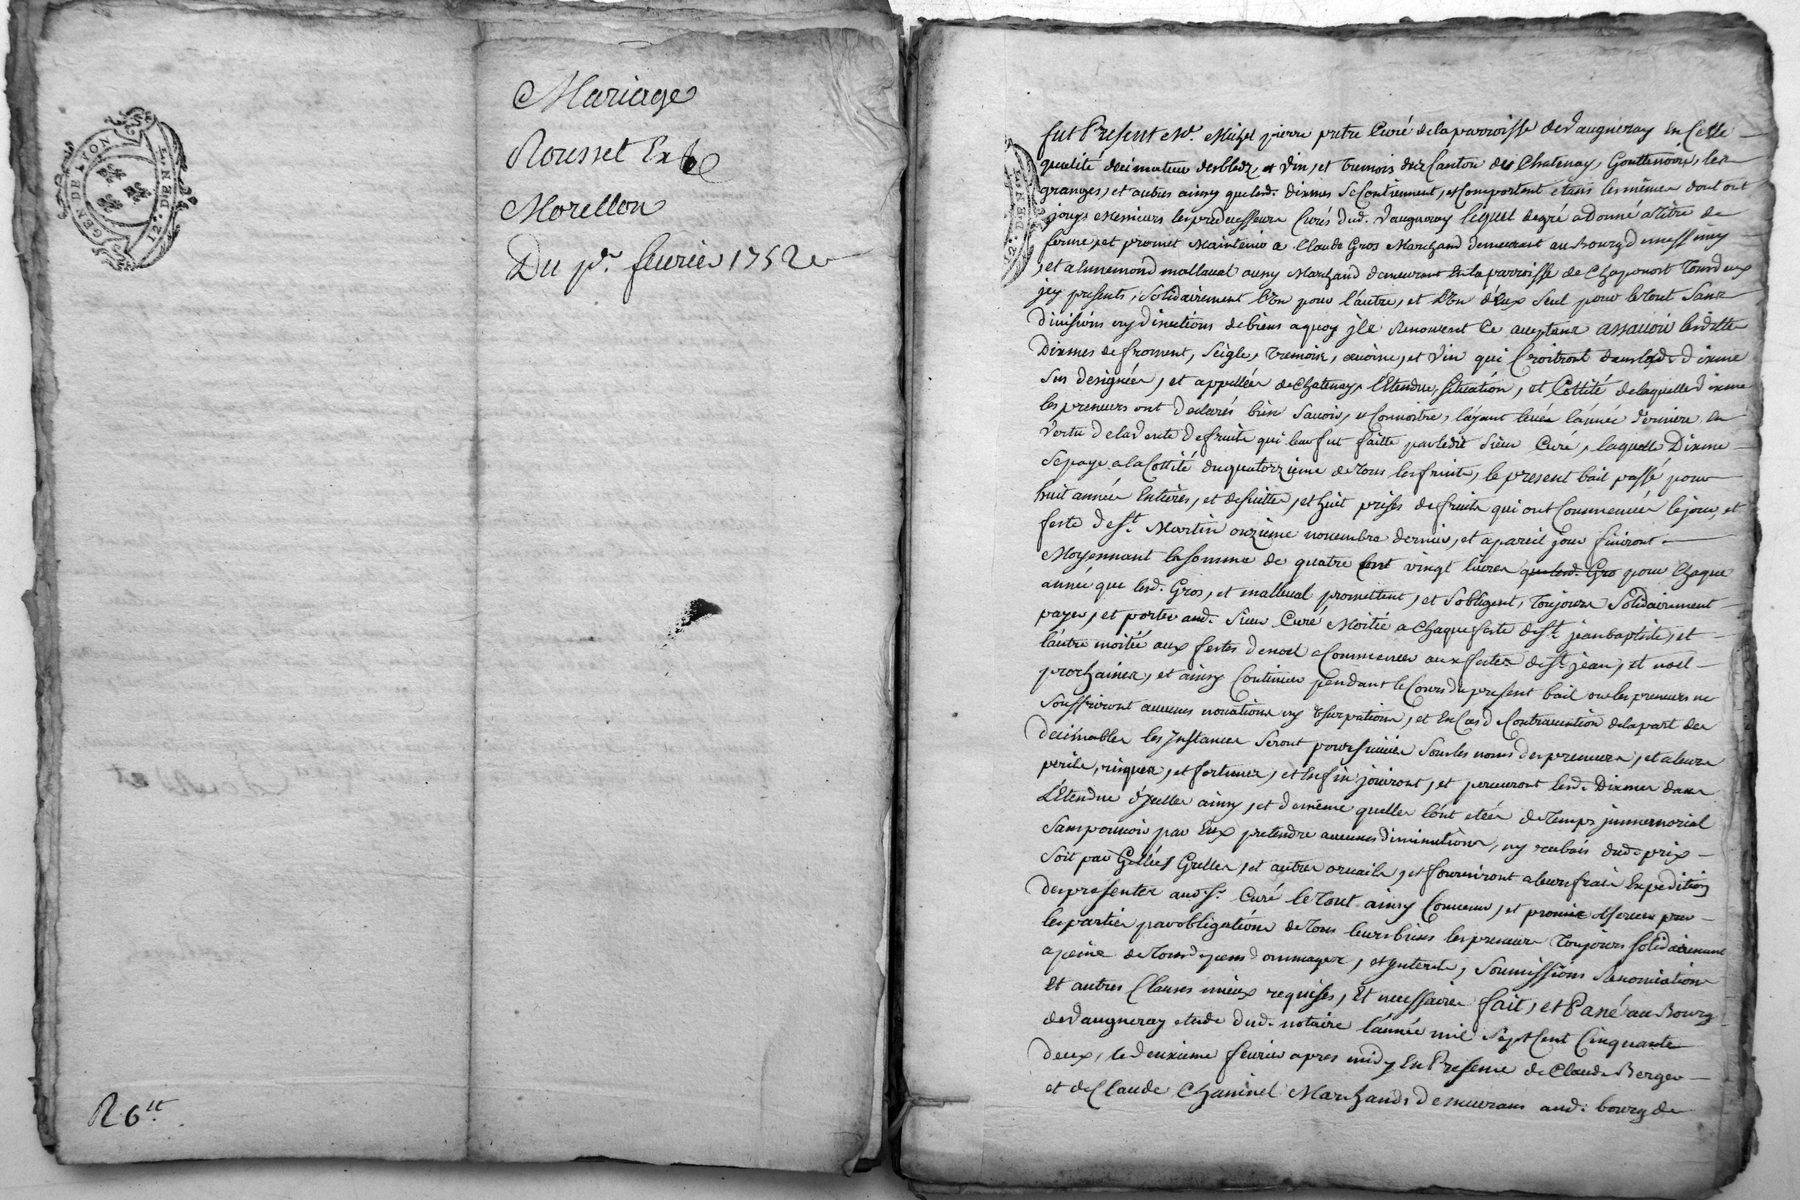 GEN DE LYON
12 DEN
Mariage
Rousset Et
Morellon
Du pr. feurier 1752
R 6lt
fut Present Mr. Michel pierre pretre Curé de la parroisse de Vaugneray En Cette
qualité decimateur des bledz, et Vin, et tremois du Canton de Chatenay, Gouttenoire, les
granges, et autres ainsy que lesd. dixmes se Contiennent, et Comportent et tans les mêmes dont ont
jouys Messieurs les predecesseurs Curés dud. Vaugneray lequel de gré a donné a titre de
ferme, et promet Maintenir a Claude Gros Marchand demeurant au Bourg de messimy
, et a Ennemond mallaual aussy Marchand demeurant En la parroisse de Chaponost tous deux
jcy presents, solidairement l'Vn pour l'autre, et L'Vn d'Eux seul pour le tout Sans
diuisions ny discutions de biens a quoy jls Renoncent Ce acceptans assauoir lesdittes
Dixmes de froment, seigle, tremois, auoine, et Vin qui Croitront dans lad. dixme
sus designée, et appellée de Chatenay, l'Etendue, situation, et Cottité de laquelle dixme
les preneurs ont declarés bien sauoir, et Connoitre, l'ayant leuée l'année derniere En
Vertu de la Vente de fruits qui leur fut faitte par ledit sieur Curé, laquelle Dixme
se paye a la Cottité du quatorzieme de tous les fruits, le present bail passé pour
huit année Entieres, et de suitte, et huit prises de fruits qui ont Commencée le jour, et
feste de St. Martin onzieme nouembre dernier, et a pareil jour finiront
Moyennant la somme de quatre Cent vingt liures que lesd. Gro pour Chaque
année que lesd. Gros, et malleual promettent, et s'obligent, toujours solidairement
payer, et porter aud. sieur Curé Moitié a Chaque feste de St. jean baptiste, et
l'autre moitié aux festes de noel a Commencer aux festes de St. jean, et noel
prochaines, et ainsy Continuer pendant le Cours du present bail ou les preneurs ne
souffriront aucunes nouations ny Vsurpations, et En Cas de Contrauention de la part des
decimables les jnstances seront poursuiuies sous les noms des preneurs, et a leurs
perils, risques, et fortunes, et Enfin jouiront, et perceuront lesd. Dixmes dans
L'Etendue d'jcelles ainsy, et de même qu'elles l'ont etées de temps jmmemorial
sans pouuoir par Eux pretendre aucunes diminutions, ny rabais dud. prix
soit par Gellées Grelles, et autres oruails, et fourniront a leurs frais Expedition
des presentes aud. Sr. Curé le tout ainsy Conuenu, et promis obseruer par
les parties par obligations de tous leurs biens les preneurs toujours solidairement
a peine de tous depens dommages, et jnterets, soumissions Renonciations
Et autres Clauses mieux requises, Et necessaires fait, et Passé au Bourg
de Vaugneray etude dud. notaire l'année mil sept Cent Cinquante
deux, le deuxieme feurier apres midy En Presence de Claude Berger
et de Claude Chaninel Marchands demeurans aud. bourg de